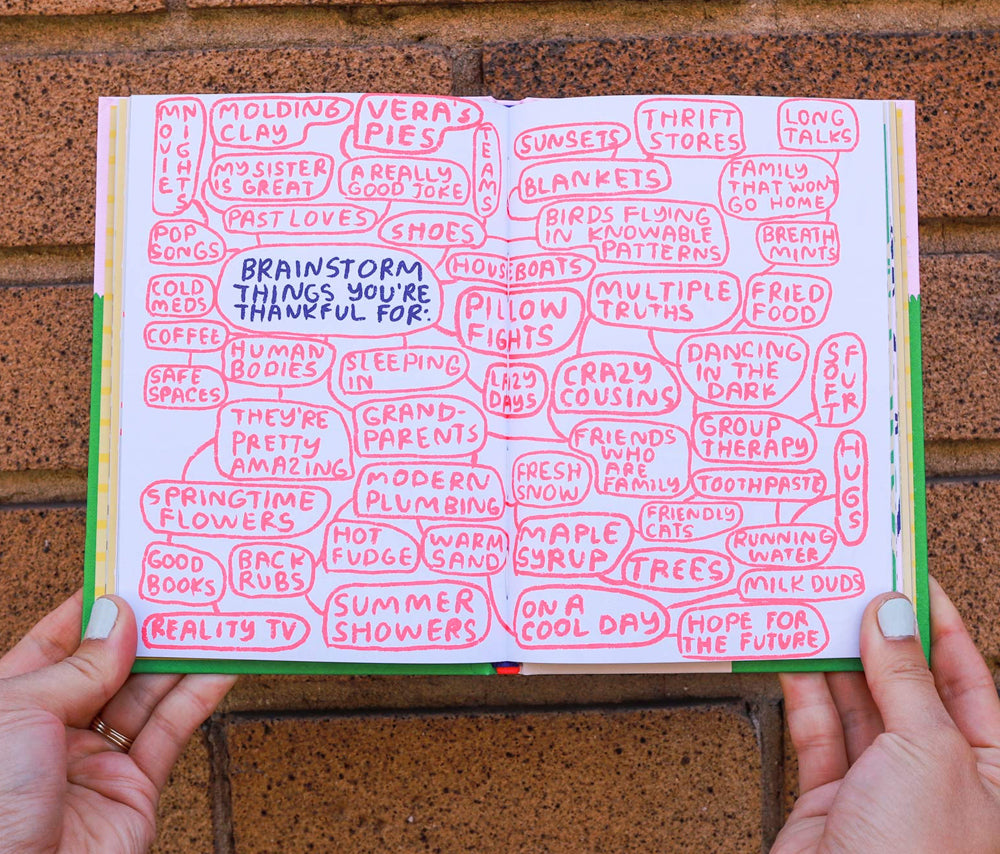 MOVIE
NIGHTS
MOLDING
CLAY
VERA'S
PIES
TEAMS
MY SISTER
IS GREAT
A REALLY
GOOD JOKE
PAST LOVES
SHOES
POP
SONGS
BRAINSTORM
THINGS YOU'RE
THANKFUL FOR:
HOUSEBOATS
COLD
MEDS
PILLOW
FIGHTS
COFFEE
HUMAN
BODIES
SLEEPING
IN
SAFE
SPACES
LAZY
DAYS
THEY'RE
PRETTY
AMAZING
GRAND-
PARENTS
MODERN
PLUMBING
SPRINGTIME
FLOWERS
HOT
FUDGE
WARM
SAND
GOOD
BOOKS
BACK
RUBS
SUMMER
SHOWERS
REALITY TV
SUNSETS
THRIFT
STORES
LONG
TALKS
BLANKETS
FAMILY
THAT WON'T
GO HOME
BIRDS FLYING
IN KNOWABLE
PATTERNS
BREATH
MINTS
MULTIPLE
TRUTHS
FRIED
FOOD
CRAZY
COUSINS
DANCING
IN THE
DARK
SOFT
FUR
FRIENDS
WHO
ARE
FAMILY
GROUP
THERAPY
HUGS
FRESH
SNOW
TOOTHPASTE
MAPLE
SYRUP
FRIENDLY
CATS
RUNNING
WATER
TREES
MILK DUDS
ON A
COOL DAY
HOPE FOR
THE FUTURE